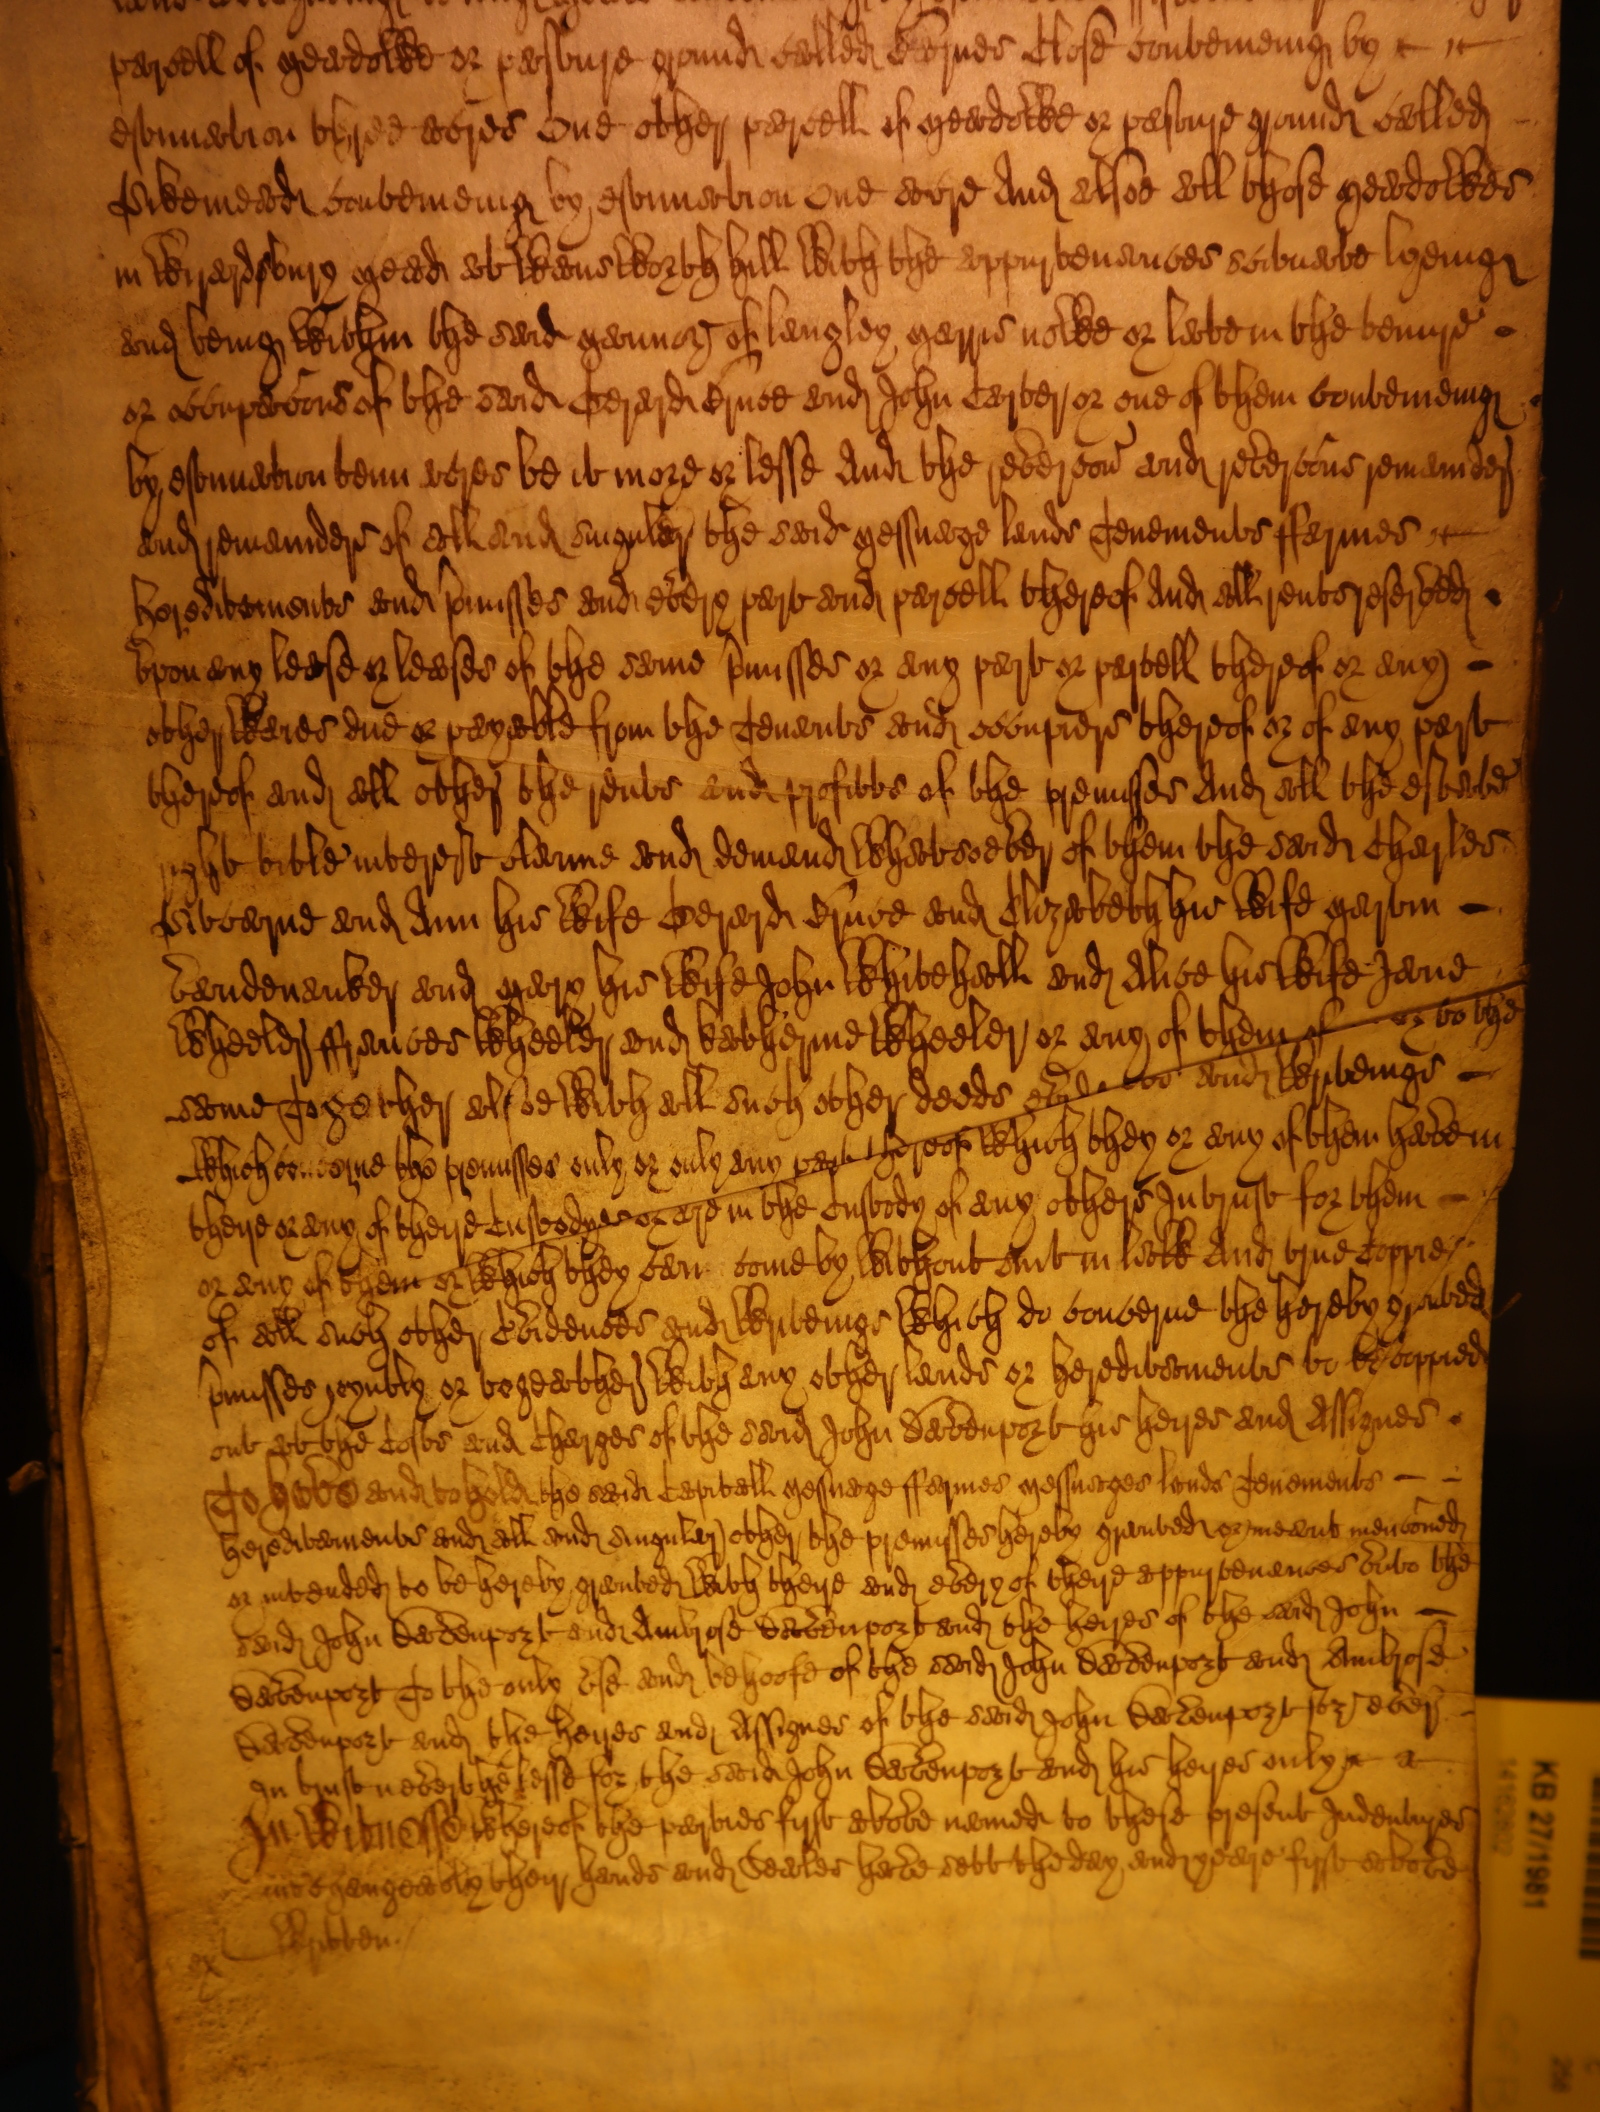 parcell of meadowe or pasture ground called Ernes Close conteineing by
estimation three acres One other parcell of meadowe or pasture ground called
Pikemead conteineing by estimation One acre And alsoe all those meadowes
in Wirardsbury mead at Wansworth hill With the appurtenances scituate lyeing
and being Within the said mannor of langley marris nowe or late in the tenure
or occupacons of the said Gerard Ernee and John Carter or one of them conteineing
by estimation tenn acres be it more or lesse And the revercon and revercons remainder
and remainders of all and singuler the said messuage lands Tenements ffarmes
hereditaments and pmisses and every part and parcell thereof And all rents reserved
Vpon any lease or leases of the same pmisses or any part or parcell thereof or any
other Waies due or payable from the Tenants and occupiers thereof or of any part
thereof and all other the rents and profitts of the premisses And all the estate
right title interest claime and demand Whatsoever of them the said Charles
Pitcarne and Ann his Wife Gerard Ernee and Elizabeth his Wife martin
Vandenanker and mary his Wife John Whitehall and Alice his Wife Jane
Wheeler ffrances Wheeler and katherine Wheeler or any of them of or to the
same Together alsoe With all such other deeds and Writeings
Which concerne the premisses only or only any part thereof Which they or any of them have in
theire or any of theire Custodyes or are in the Custody of any others In trust for them
or any of them or Which they can come by Without suit in lawe And true Coppies
of all such other Evidences and Writeings Which do concerne the hereby granted
pmisses joyntly or togeather With any other lands or hereditaments to be coppied
out at the Costs and Charges of the said John Davenport his heires and Assignes
To have and to hold the said Capitall messuage ffarmes messuages lands Tenements
hereditaments and all and singular other the premisses hereby granted or meant menconed
or intended to be hereby granted With theire and every of theire appurtenances Vnto the
said John Davenport and Ambrose Davenport and the heires of the said John
Davenport To the only Vse and behoofe of the said John Davenport and Ambrose
Davenport and the heires and Assignes of the said John Davenport for ever
In trust neverthelesse for the said John Davenport and his heires only
In Witnesse Whereof the parties first above named to these present Indentures
interchangeably their hands and Seales have sett the day and yeare first above
Written.
ex
KB 27/1981